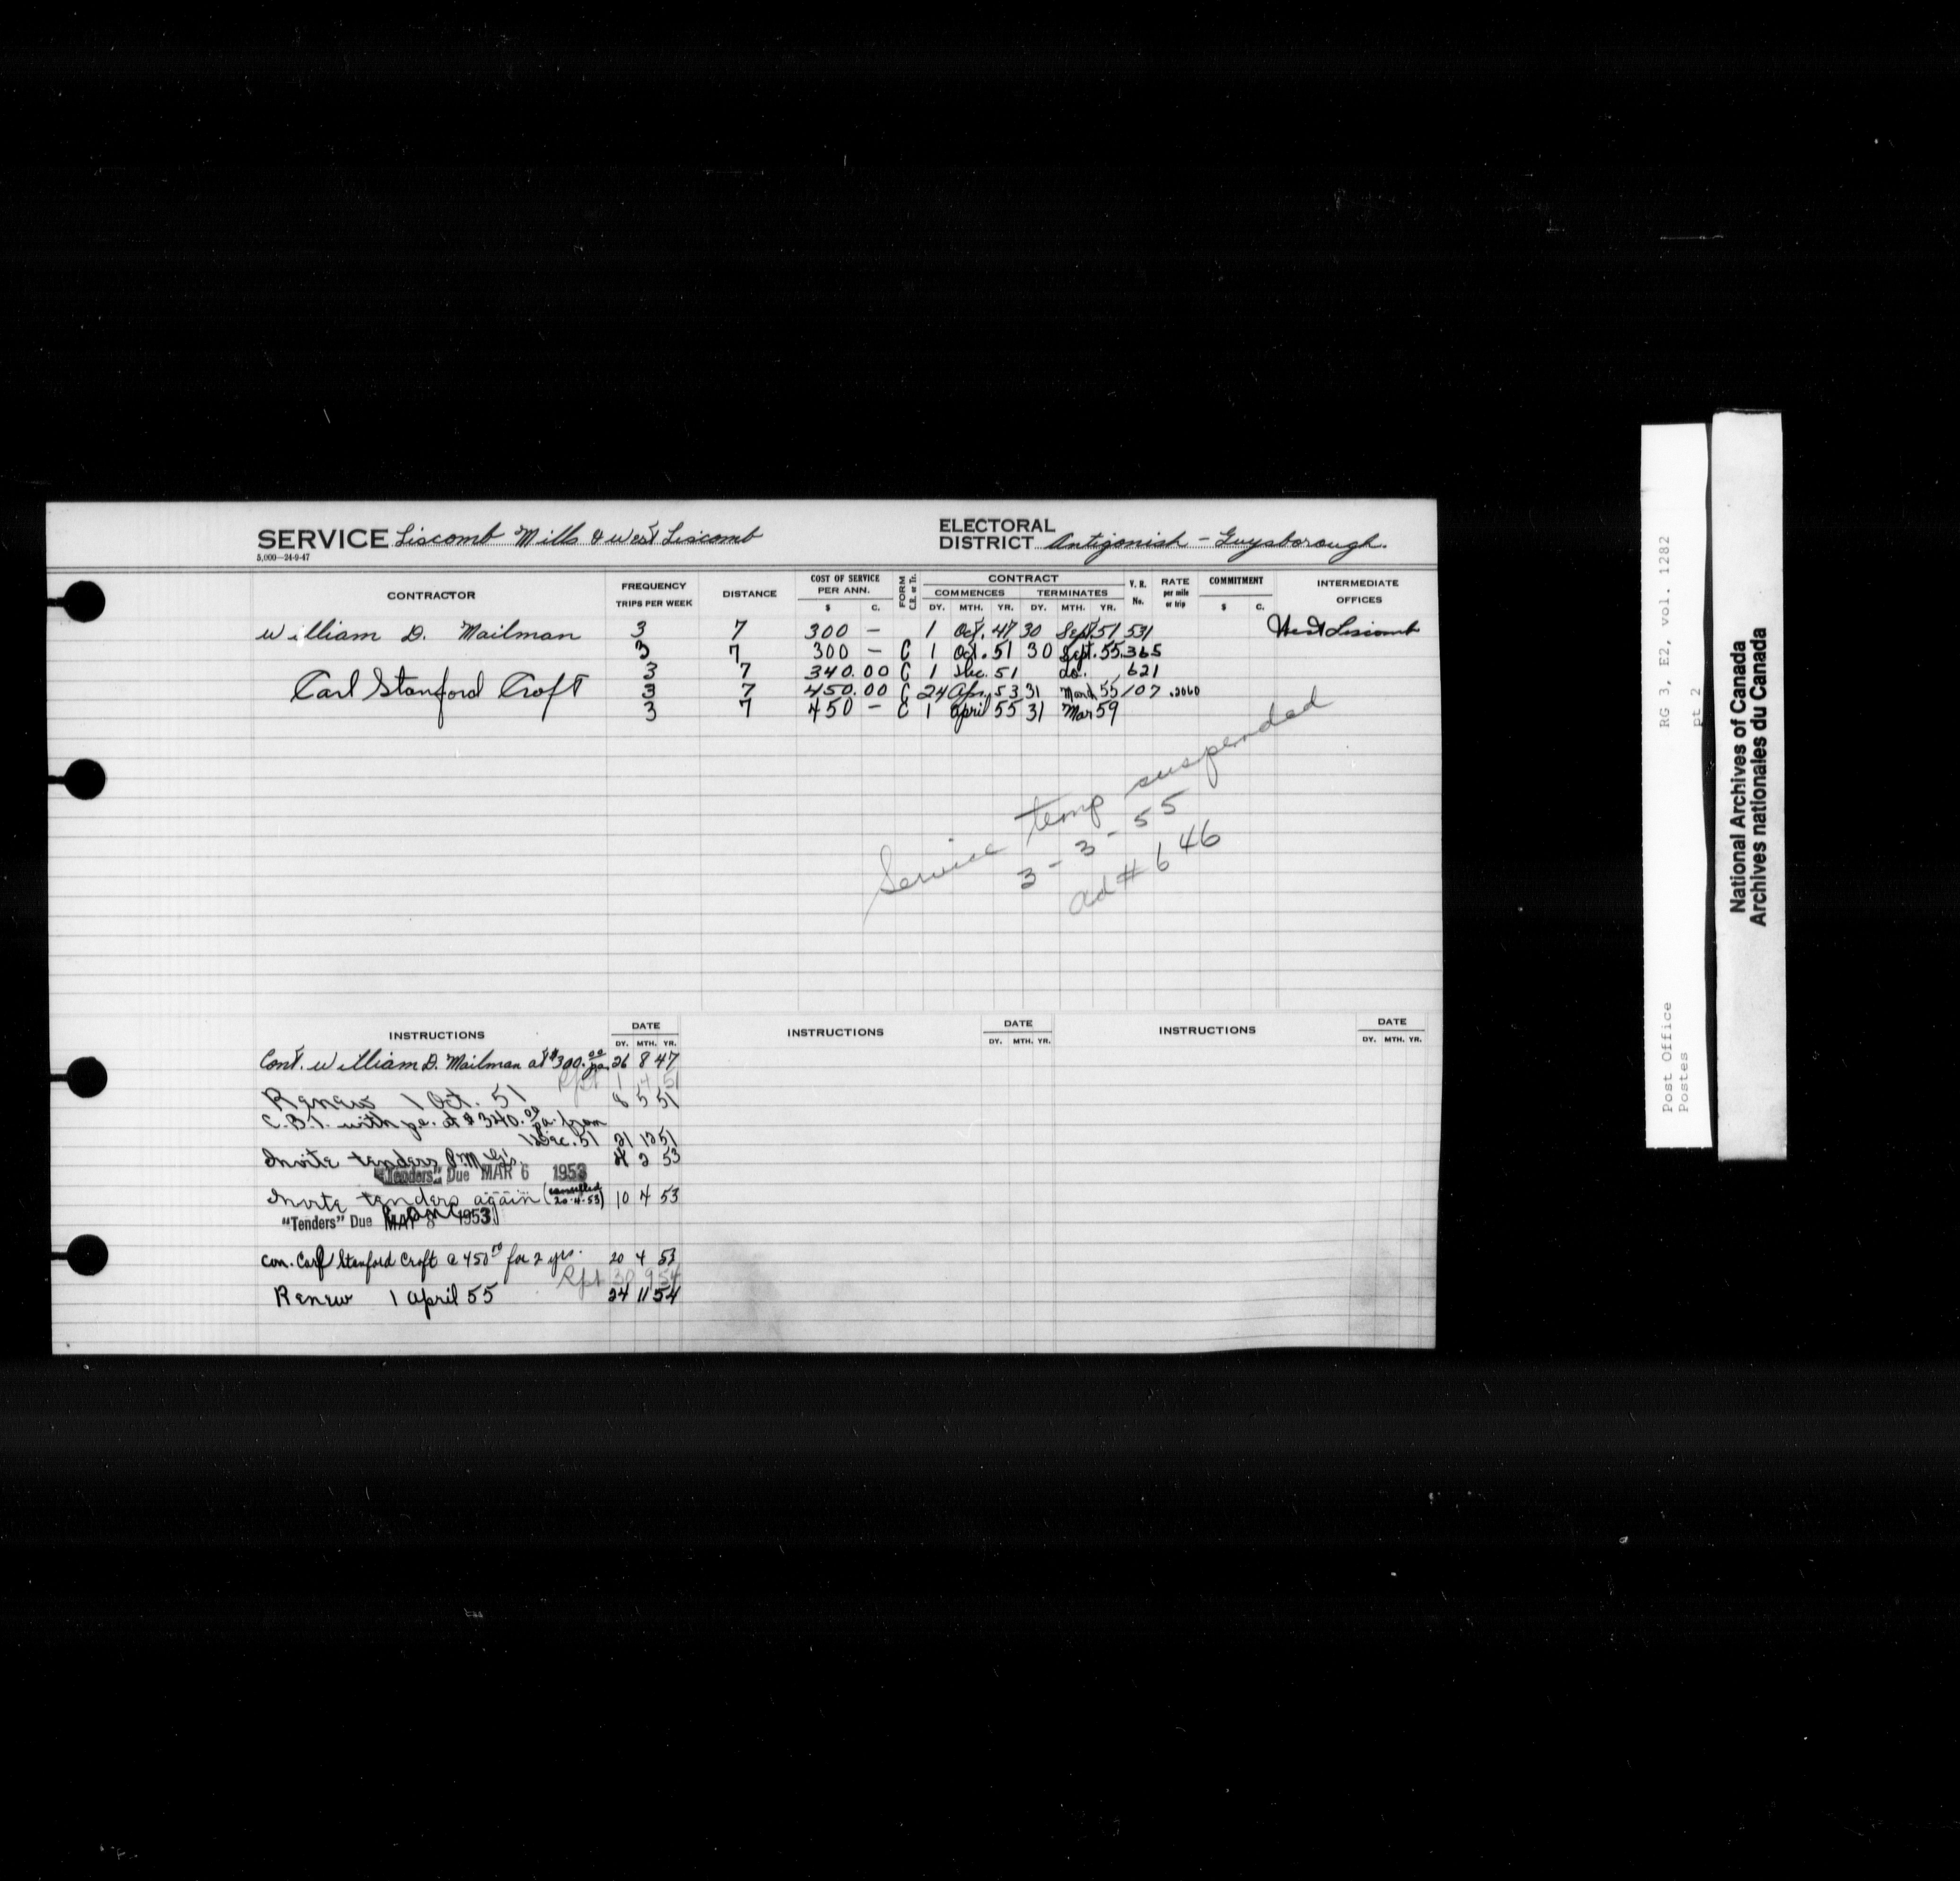 SERVICE Liscomb Mills & West Liscomb
ELECTORAL DISTRICT Antigonish - Guysborough.
5,000—24-9-47
CONTRACTOR FREQUENCY TRIPS PER WEEK DISTANCE COST OF SERVICE PER ANN. $ C. FORM C.R. or Tr. CONTRACT COMMENCES DY. MTH. YR. TERMINATES DY. MTH. YR. V. R. No. RATE per mile or trip COMMITMENT $ C. INTERMEDIATE OFFICES
William D. Mailman 3 7 300 — 1 Oct. 47 30 Sept. 51 531 West Liscomb
3 7 300 — C 1 Oct. 51 30 Sept. 55 365
3 7 340.00 C 1 Dec. 51 do. 621
Carl Stanford Croft 3 7 450.00 C 24 Apr. 53 31 March 55 107 .2060
3 7 450 — C 1 April 55 31 Mar 59
Service temp suspended
3-3-55
ad # 646
INSTRUCTIONS DATE DY. MTH. YR. INSTRUCTIONS DATE DY. MTH. YR. INSTRUCTIONS DATE DY. MTH. YR.
Cont. William D. Mailman at $300.00 pa. 26 8 47
Rpt 1 4 51
Renew 1 Oct. 51 8 5 51
C.B.T. with pe. at $340.00 pa. from
1 Dec. 51 21 12 51
Invite tenders 2 53
"Tenders" Due MAR 6 1953
Invite tenders again (cancelled 20-4-53) 10 4 53
"Tenders" Due MAY 8 1953
Con. Carl Stanford Croft @ 450.00 for 2 yrs. 20 4 53
Rpt 30 9 54
Renew 1 April 55 24 11 54
Post Office
Postes
RG 3, E2, vol. 1282
pt 2
National Archives of Canada
Archives nationales du Canada